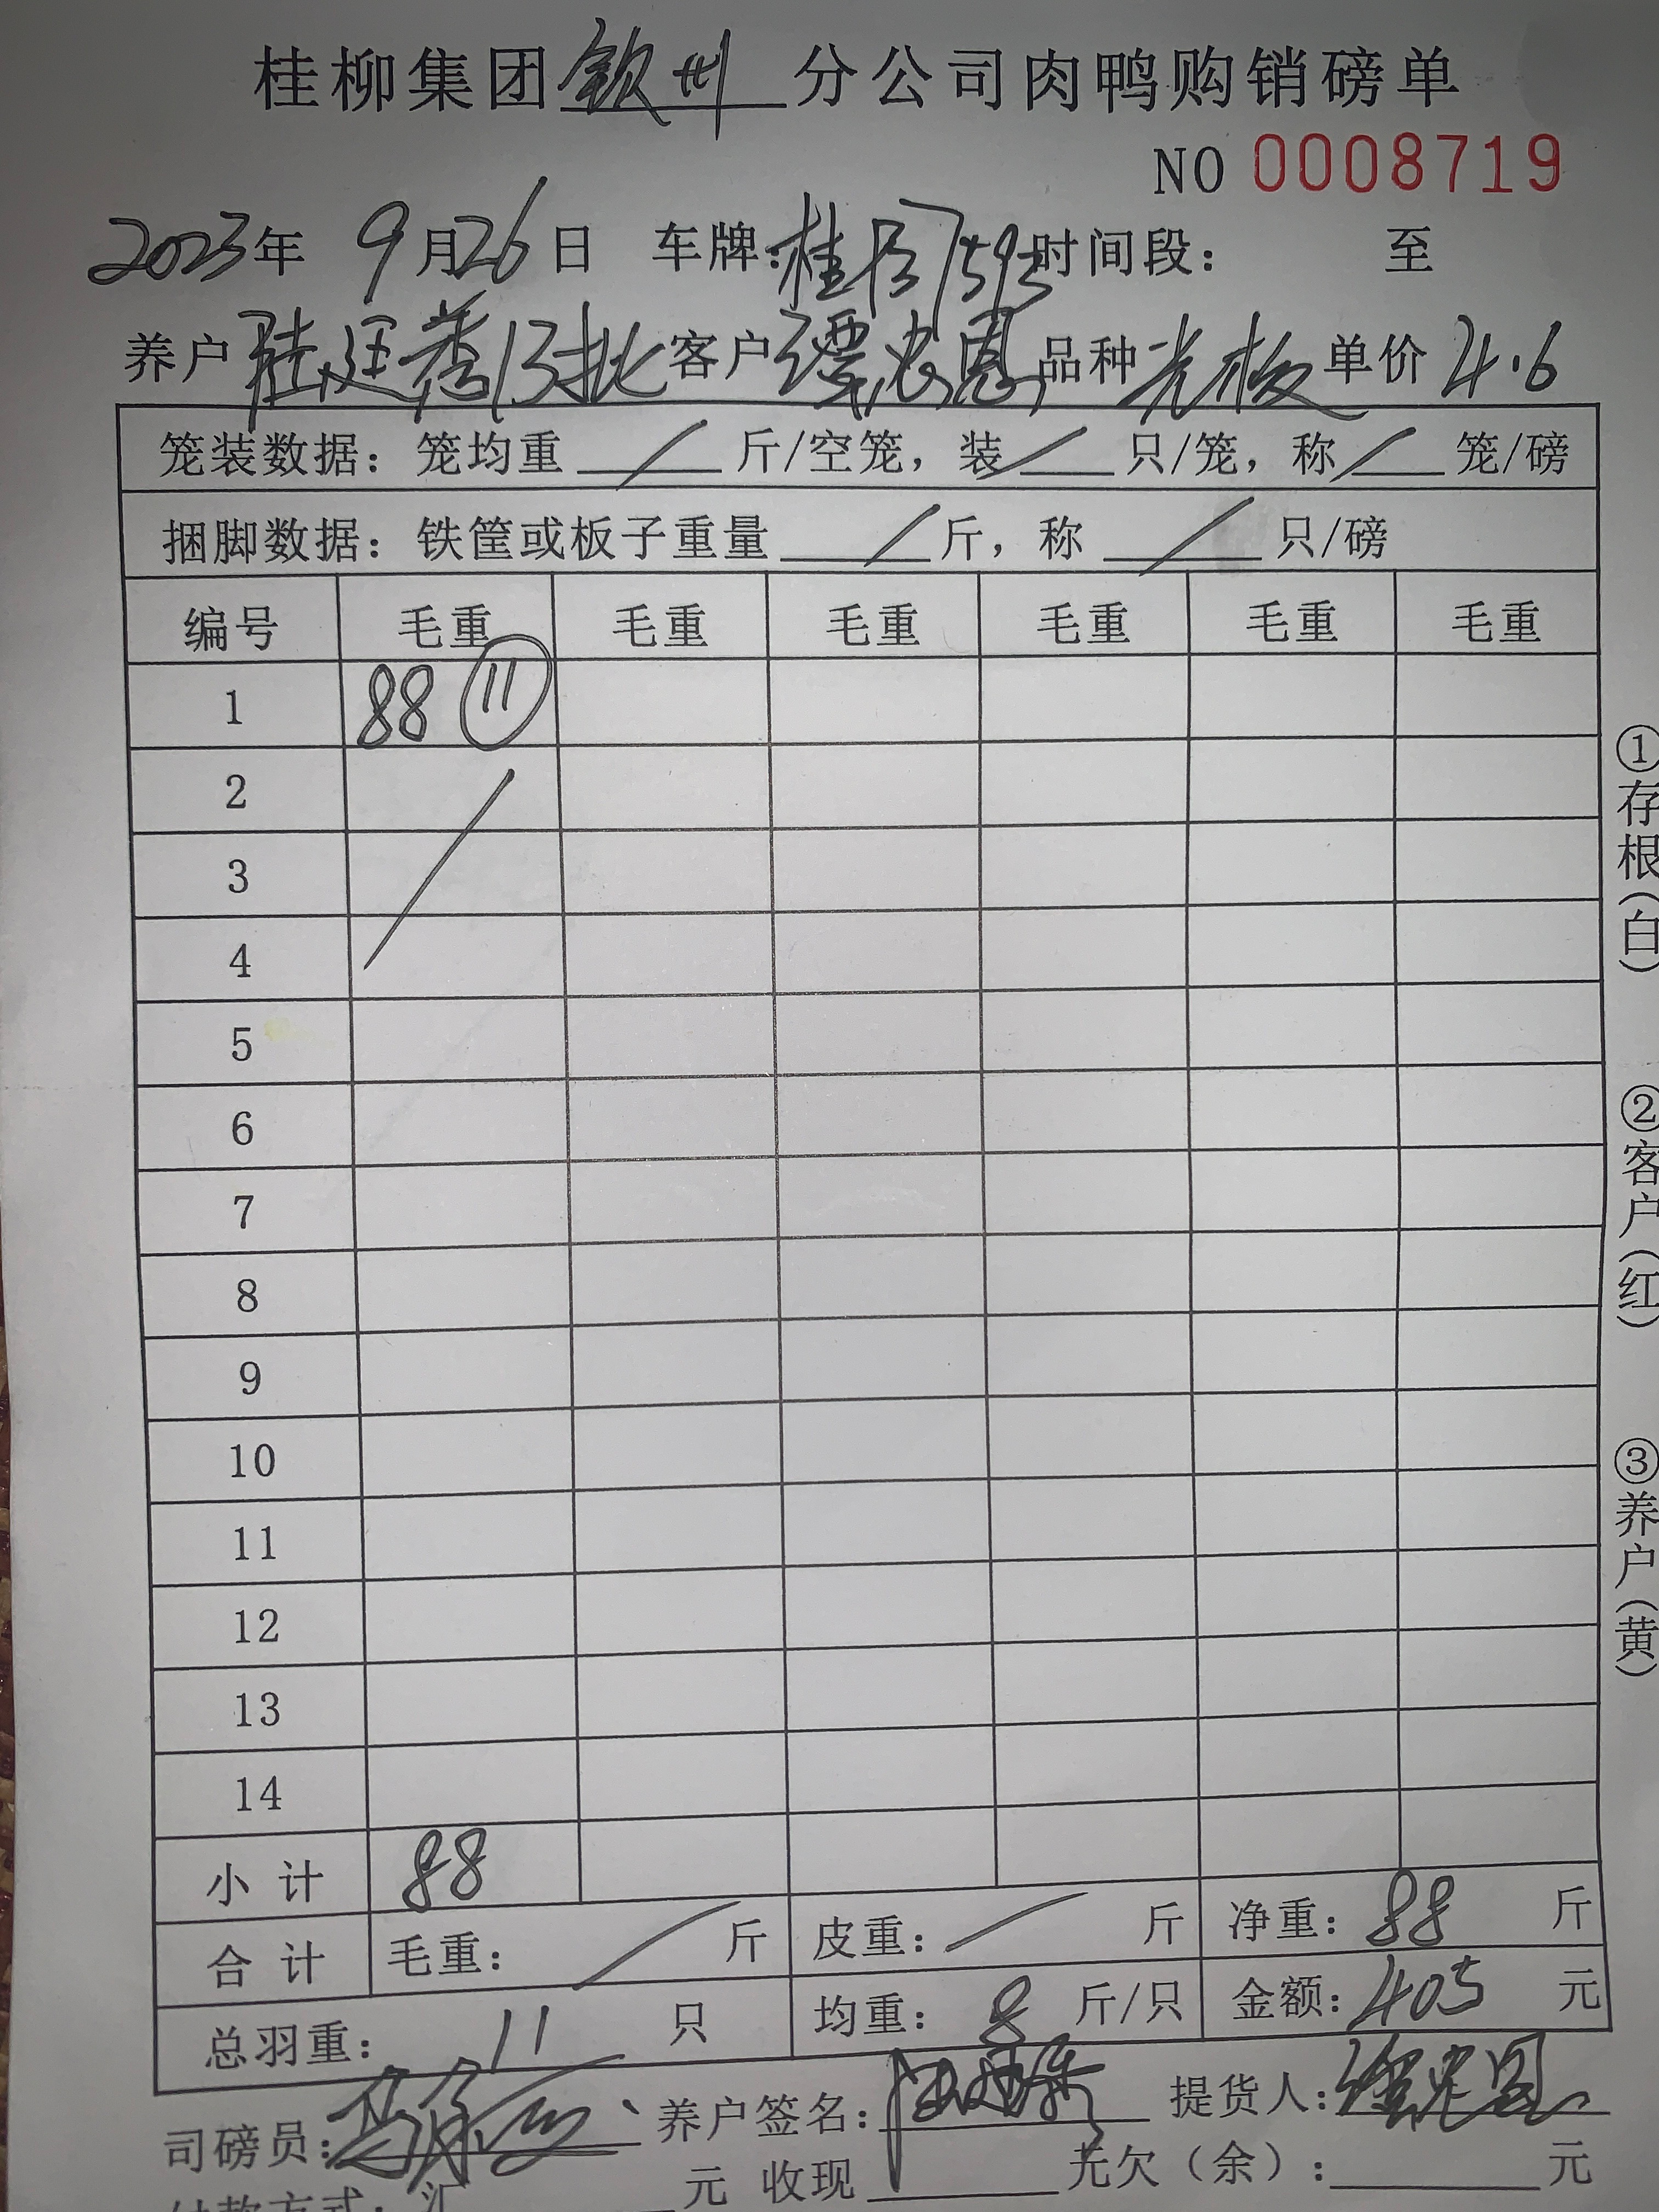 桂柳集团钦州分公司肉鸭购销磅单
NO 0008719
2023年 9月26日 车牌: 桂 时间段: 至
养户 廷秀13批 客户 谭忠恩 品种 光板 单价 4.6
笼装数据: 笼均重 / 斤/空笼, 装 / 只/笼, 称 / 笼/磅
捆脚数据: 铁筐或板子重量 / 斤, 称 / 只/磅
编号 毛重 毛重 毛重 毛重 毛重 毛重
1 88 ⑪
2
3
4
5
6
7
8
9
10
11
12
13
14
小计 88
合计 毛重: / 斤 皮重: / 斤 净重: 88 斤
总羽重: 11 只 均重: 8 斤/只 金额: 405 元
司磅员: 养户签名: 提货人:
付款方式: 汇 元 收现 元 欠(余): 元
①存根(白)
②客户(红)
③养户(黄)